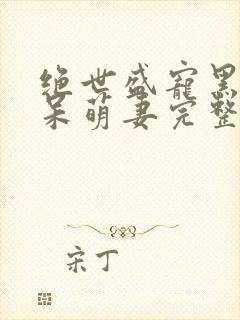 绝世盛宠黑
呆萌妻完整
宋丁